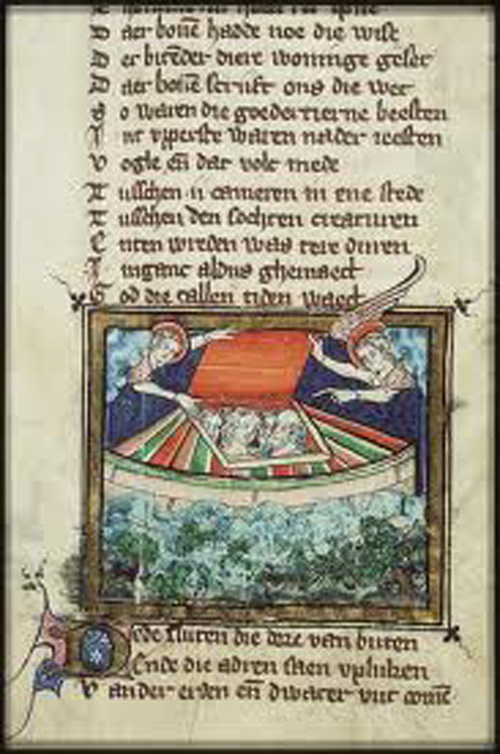 D aer bouē hadde noe die wise
D er bitēder diere woninge geset
D aer bouē screef ons die wet
S o waren die goedertierne beesten
I nt upperste waren nader reesten
V ogle eñ dat volc mede
T usschen ii cameren in ene stede
T usschen den sochten creaturen
E nten wreden was tere duren
I nganc aldus ghemaect
G od die tallen tiden waect
D ede sluten die dore van buten
Ende die adren staen upluken
V ander erden eñ dwater uut comē